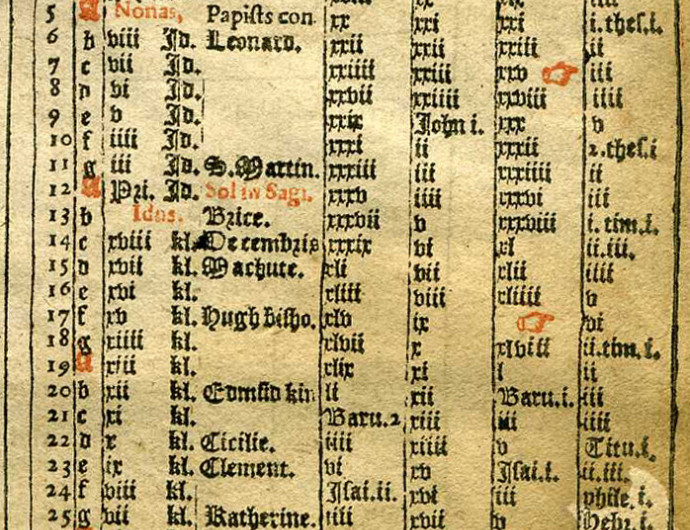 5 A Nonas, Papists con. xx xxi xx i.thes.i.
6 b viii Id. Leonard. xxii xxii xxiii ii
7 c vii Id. xxiiii xxiii xxv iii
8 d vi Id. xxvii xxiiii xxviii iiii
9 e v Id. xxix John i. xxx v
10 f iiii Id. xxxi ii xxxii 2.thes.i
11 g iii Id. S.Martin. xxxiii iii xxxiiii ii
12 A Pri. Id. Sol in Sagi. xxxv iiii xxxvi iii
13 b Idus. Brice. xxxvii v xxxviii i.tim.i.
14 c xviii kl. Decembris xxxix vi xl ii.iii.
15 d xvii kl. Machute. xli vii xlii iiii
16 e xvi kl. xliii viii xliiii v
17 f xv kl. Hugh bisho. xlv ix vi
18 g xiiii kl. xlvii x xlviii ii.tim.i.
19 A xiii kl. xlix xi l ii
20 b xii kl. Edmūd kin li xii Baru.i. iii
21 c xi kl. Baru.2 xiii iii iiii
22 d x kl. Cicilie. iiii xiiii v Titu.i.
23 e ix kl. Clement. vi xv Isai.i. ii.iii.
24 f viii kl. Isai.ii. xvi iii phile.i.
25 g vii kl. Katherine. iiii xvii v Hebr.i.